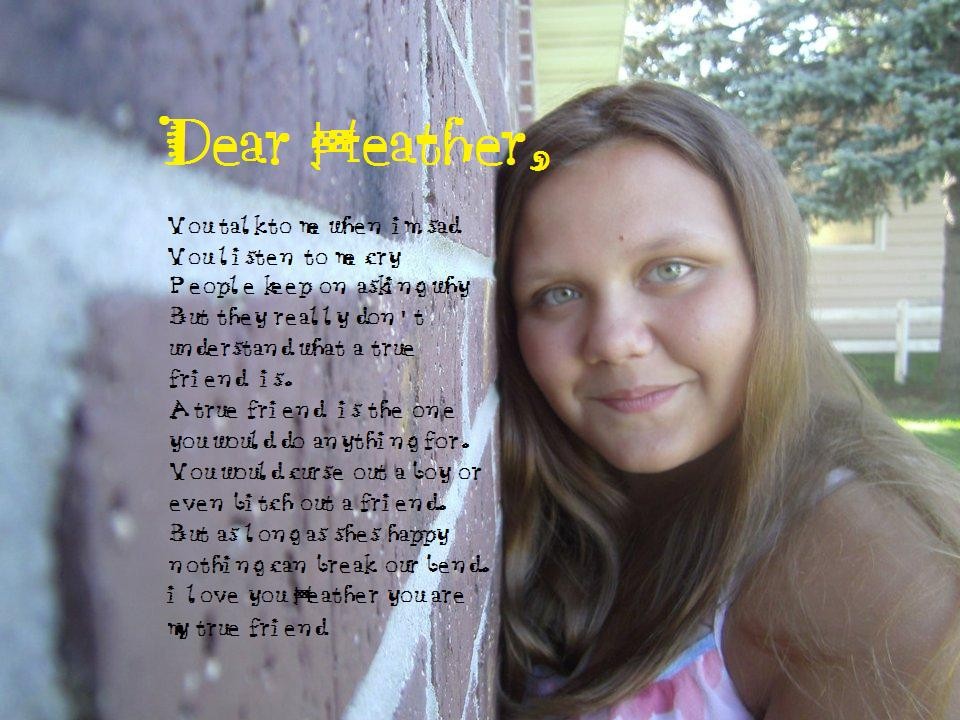 Dear Heather,
You talk to me when i'm sad
You listen to me cry
People keep on asking why
But they really don't
understand what a true
friend is.
A true friend is the one
you would do anything for.
You would curse out a boy or
even bitch out a friend.
But as long as shes happy
nothing can break our bend.
i love you Heather you are
my true friend